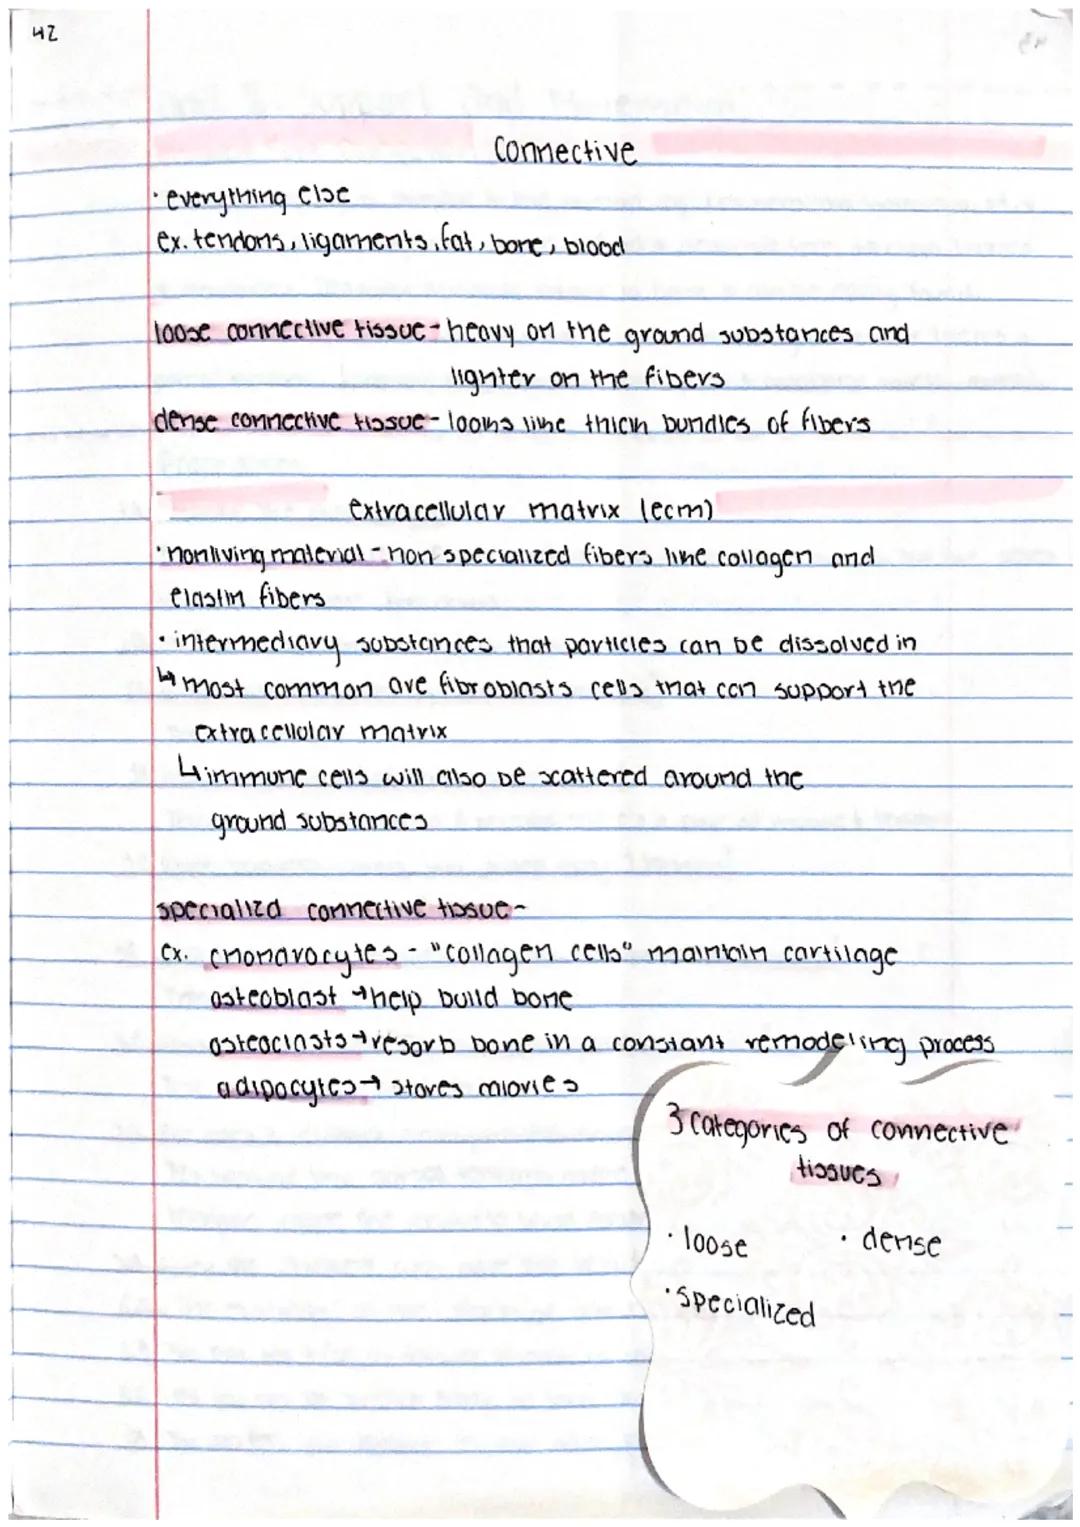 42
Connective
· everything else
ex. tendons, ligaments, fat, bone, blood
loose connective tissue - heavy on the ground substances and
lighter on the fibers
dense connective tissue - looks like thick bundles of fibers
extracellular matrix (ecm)
· nonliving material - non specialized fibers like collagen and
elastin fibers
· intermediary substances that particles can be dissolved in
↳ most common are fibroblasts cells that can support the
extracellular matrix
↳ immune cells will also be scattered around the
ground substances
specializd connective tissue -
ex. chondrocytes - "collagen cells" maintain cartilage
osteoblast → help build bone
osteoclasts → resorb bone in a constant remodeling process
adipocytes → stores calories
3 categories of connective
tissues
· loose · dense
· specialized